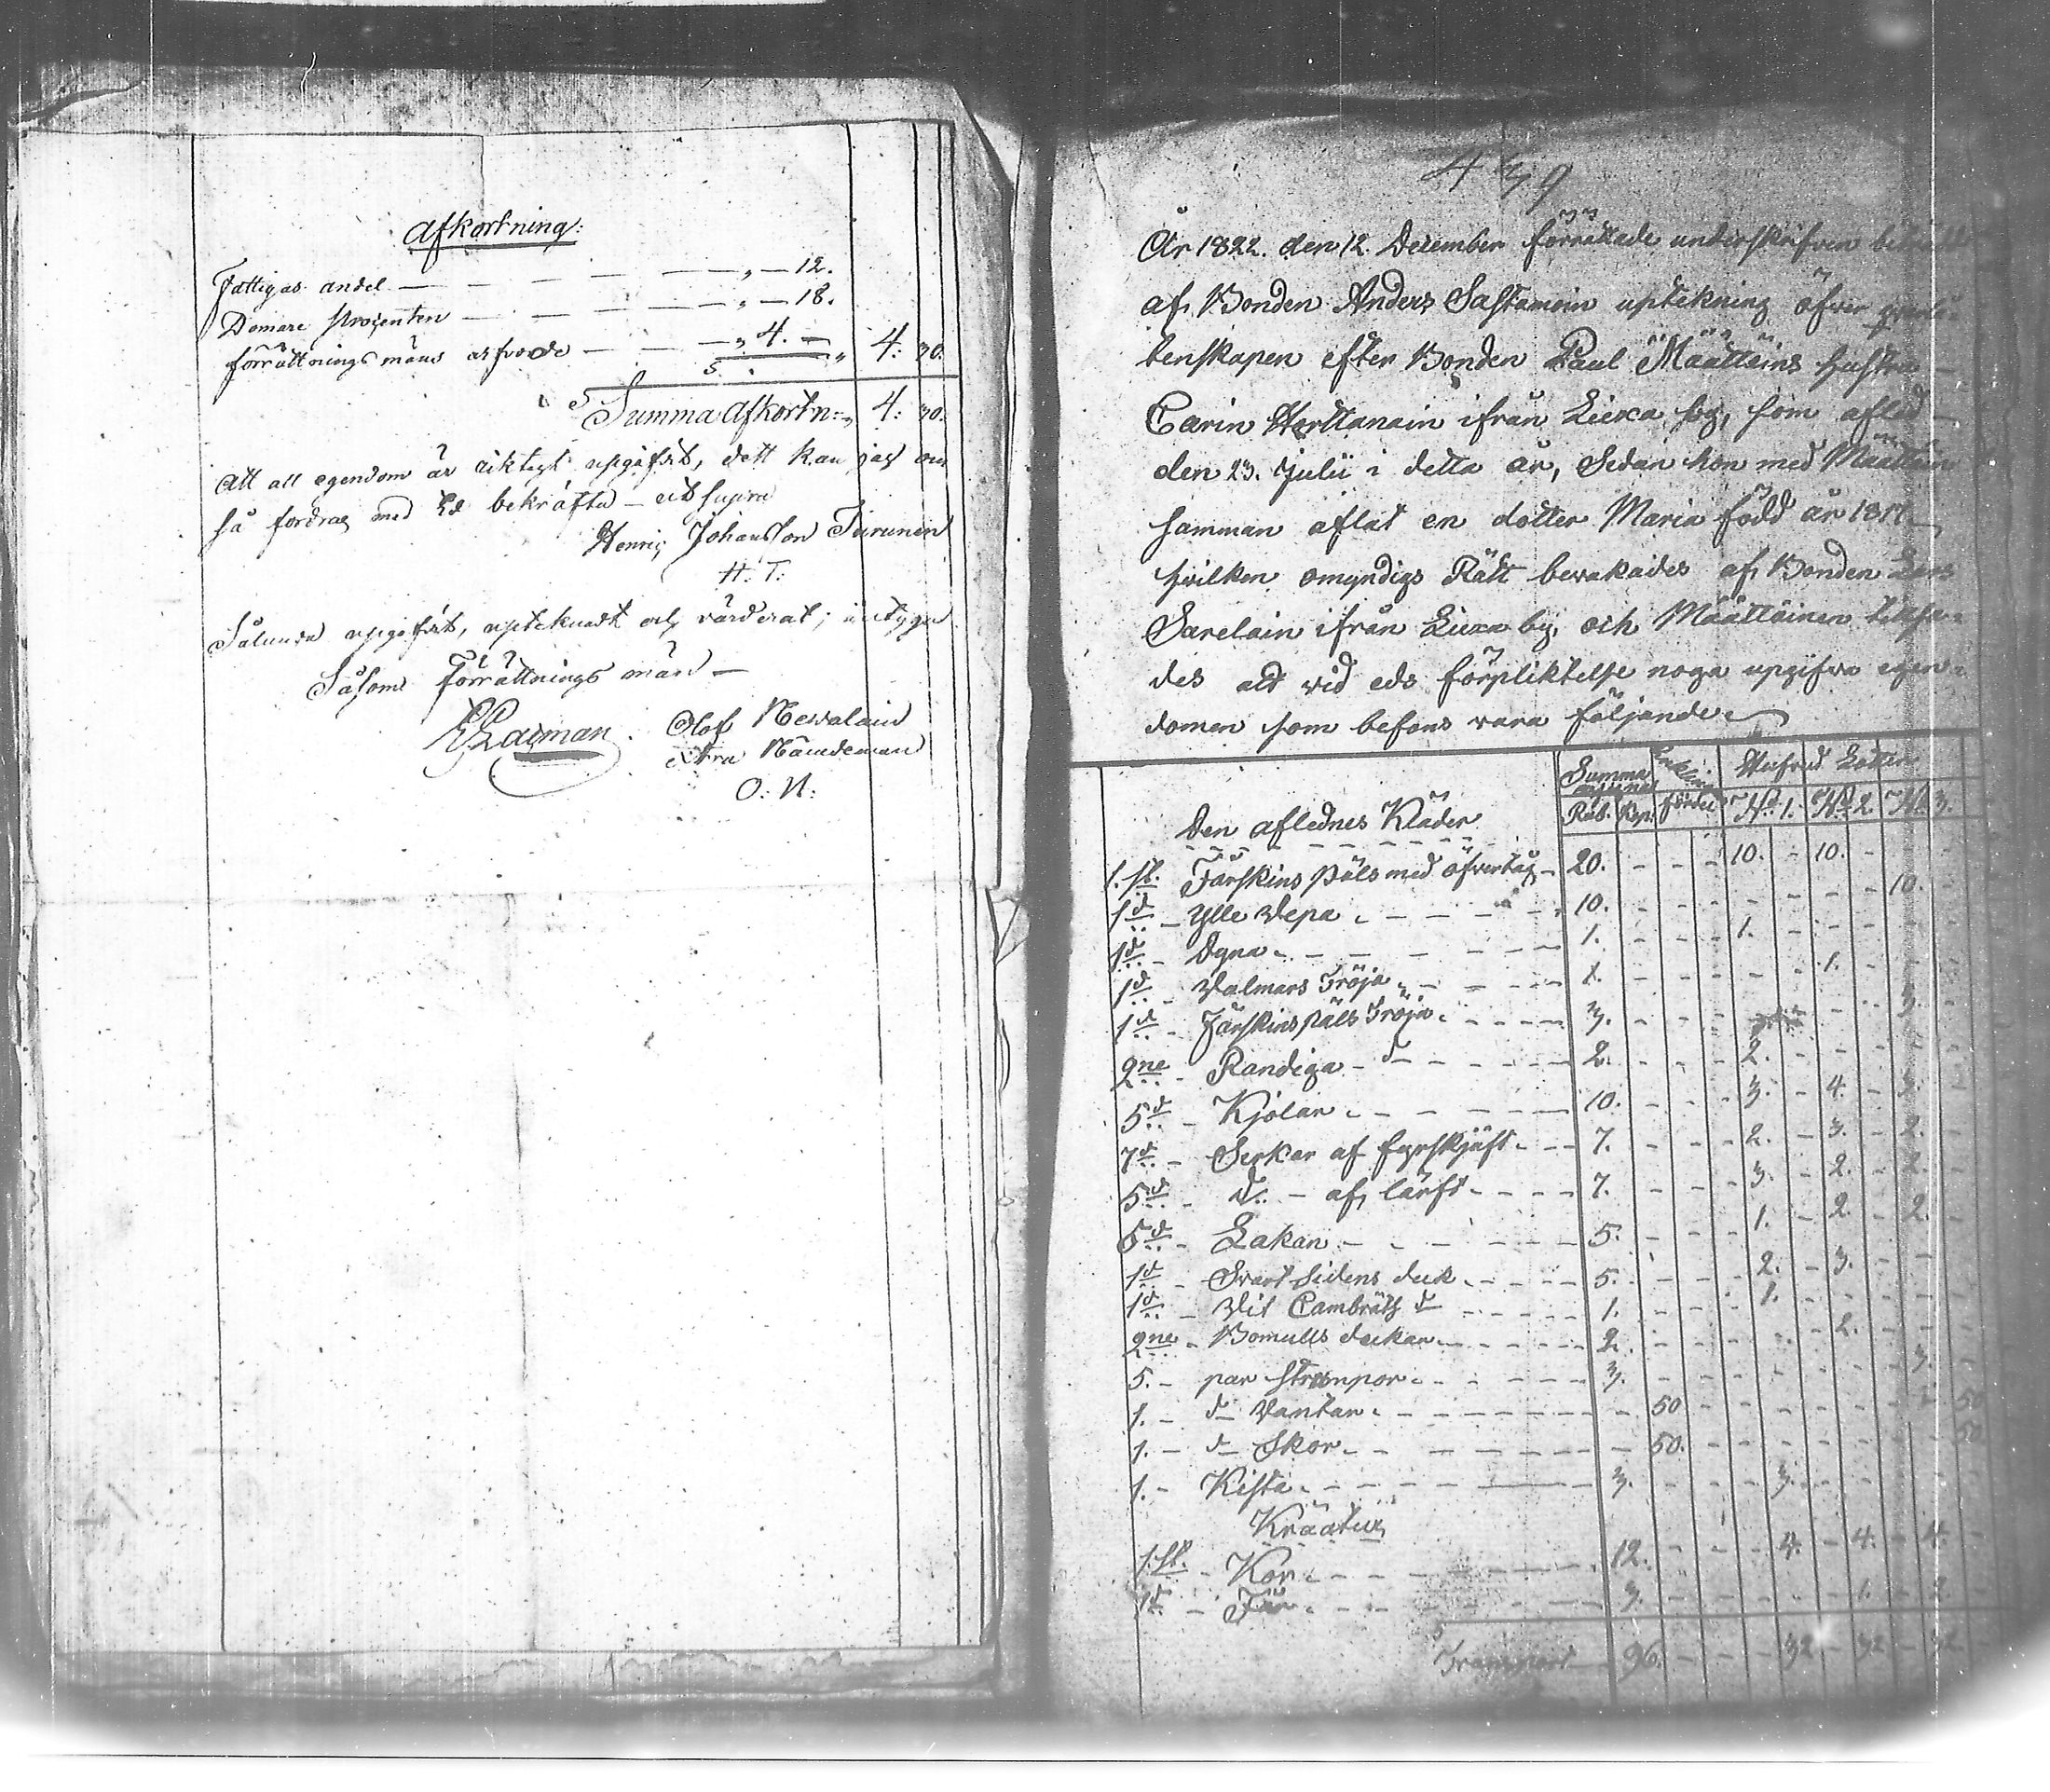 Afkortning:
Fattigas andel — — — — „ — 12.
Domare Procenten — — — — „ — 18.
förrättnings mäns arfvode — — — „ 4. — „ 4: 30.
Summa Afkortn: „ 4: 30.
Att all egendom är riktigt upgifvit, dett kan jag om
så fordras med Ed bekräfta — ut supra
Henric Johansson Turunen
H: T:
Sålunda upgifvit, uptecknadt och värderat; intyga
Såsom Förrättnings män —
Olof Nevalain
Extra Nämdeman
O: N:
439
År 1822. den 12 December förrettade underskrifven
af Bonden Anders Sastamoin uptekning öfver qvarlå-
tenskapen efter Bonden Paul Määttäins hustru
Carin Harttanain ifrån Liexa by, som afled
den 23. Julii i detta år, Sedan hon med Määttäin
samman aflat en dotter Maria född år 1817
hvilken omyndigs Rätt bevakades af Bonden Lars
Sarelain ifrån Liexa by, och Määttäinen tilsa-
des att vid eds förpliktelse noga upgifva egen-
domen som befans vara följande
Summa Enklings Hufvud Lotten
Den aflednes Kläder Rub. Kop. fördel No 1. No 2. No 3.
1. st. Fårskins Päls med öfvertåg 20. - - - 10. - 10. -
1 d: - Ylle Vepa - - - 10. - - - 10.
1 d: - Dyna - - - 1. - - - 1. - -
1 d: - Valmars Tröja - - 1. - - - 1. - -
1 d: - Fårskins päls Tröja - - - 3. - - - 3.
2ne - Randiga d - - - 2. - - - 2. - -
5 d: - Kjolar - - - 10. - - - 3. - 4. - 3.
7 d: - Serker af fyrskjäft - - 7. - - - 2. - 3. - 2.
5 d: - d: - af lärft - - - 7. - - - 3. - 2. - 2.
5 d: - Lakan - - - 5. - - - 1. - 2. - 2.
1 d: - Svart Sidens duk - - - 5. - - - 2. - 3. -
1 d: - Vit Cambräts d - - - 1. - - - 1. - -
2ne - Bomulls dukar - - - 2. - - - 2. - -
5. - par Strumpor - - - 3. - - - 3.
1. - d - Vantar - - - 50 - - - 50
1. - d - Skor - - - 50. - - - 50.
1. - Kista - - - 3. - - - 3. - -
Kräatur
1. st. - Kor - - - 12. - - - 4. - 4. - 4.
1 d: - Får - - - 3. - - - 1. - 2.
Transport 96. - - - 32 - 32 - 32